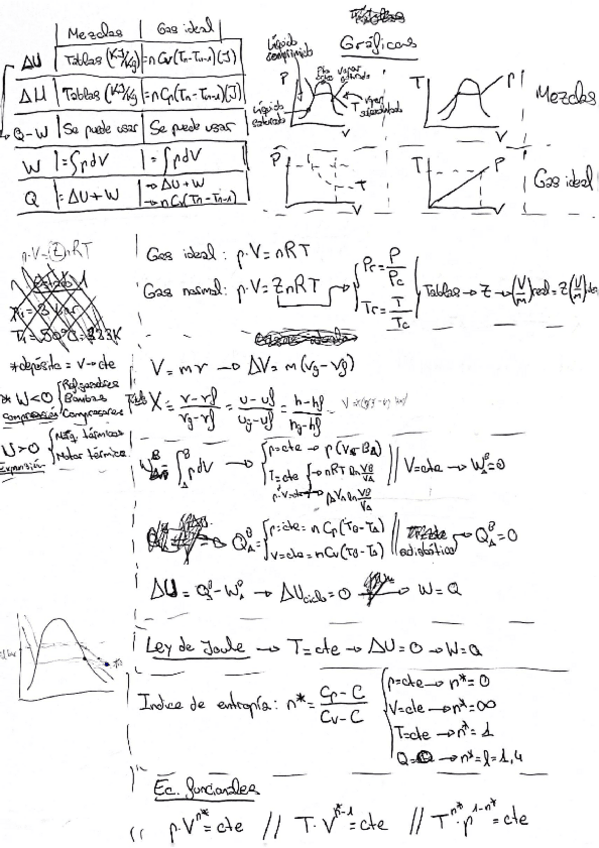 Mezclas | Gas ideal
ΔU | Tablas (KJ/Kg) | = n Cv (Tn - Tn-1) (J)
ΔH | Tablas (KJ/Kg) | = n Cp (Tn - Tn-1) (J)
Q - W | Se puede usar | Se puede usar
W | = ∫pdV | = ∫pdV
Q | = ΔU + W | → ΔU + W
→ n Cv (Tn - Tn-1)
Gráficas
Líquido comprimido
P
T
V
Líquido saturado
T
P
V
Mezclas
P
V
T
P
V
Gas ideal
p·V = Z n R T
T1 = 50°C = 323K
* depósito = V → cte
* W < 0 { Refrigeradores
Bombas
Compresores
compresión
W > 0 { Máq. térmicas
Motor térmico
Expansión
Gas ideal: p·V = nRT
Gas normal: p·V = ZnRT → { Pr = P/Pc
Tr = T/Tc } Tablas → Z → (V/m)real = Z(V/m)
V = mv → ΔV = m(vg - vf)
X = v - vf / vg - vf = u - uf / ug - uf = h - hf / hg - hf
∫ᴮA pdV → { p = cte → p(VB - VA)
T = cte → nRT ln VB/VA
// V = cte → Wᴮ_A = 0
Qᴮ_A = { p = cte = n Cp (TB - TA)
V = cte = n Cv (TB - TA) // adiabática → Qᴮ_A = 0
ΔU = Qᴮ_A - Wᴮ_A → ΔUciclo = 0 → W = Q
Ley de Joule → T = cte → ΔU = 0 → W = Q
Indice de entropía: n* = Cp - C / Cv - C { p = cte → n* = 0
V = cte → n* = ∞
T = cte → n* = 1
Q = 0 → n* = γ = 1,4
Ec. funcionales
p·Vⁿ* = cte // T·Vⁿ*⁻¹ = cte // Tⁿ*·p¹⁻ⁿ* = cte